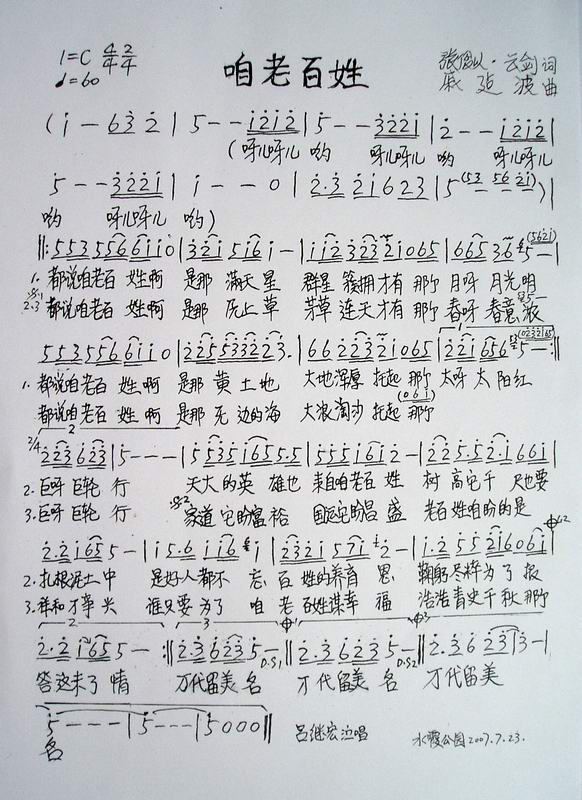 1=C 4/4 2/4 咱老百姓 张俊以·云剑 词
♩=60 戚建波 曲
(i — 6 3 2 | 5 — — i 2 i 2 | 5 — — 3 2 2 i | 2 — — i 2 i 2 |
(呀儿呀儿 哟 呀儿呀儿 哟 呀儿呀儿
5 — — 3 2 2 i | i — — 0 | 2·3 2 i 6 2 3 | 5 (53 56 2i) ) |
哟 呀儿呀儿 哟)
‖: 5 5 3 5 5 6 6 i i 0 | 3 2 i 5 i 6 i — | i i 2 3 2 3 2 i 0 6 5 | 6 6 5 3 6 5 — (562i)
1. 都说咱老百姓啊 是那满天星 群星簇拥才有那个月呀月光明
2.3 都说咱老百姓啊 是那原上草 芳草连天才有那个春呀春意浓
5 5 3 5 5 6 6 i i 0 | 2 2 5 5 3 3 2 2 3. | 6 6 2 2 3 2 i 0 6 5 | 2 2 i 6 5 6 5 — :‖
1. 都说咱老百姓啊 是那黄土地 大地浑厚托起那个太呀太阳红
都说咱老百姓啊 是那无边的海 大浪淘沙托起那个
2/4 2 2 3 6 2 3 | 5 — — — | 5 5 3 5 i 6 5 5·5 | 5 5 5 i 6 i 2 — | 2 2 5·5 2·i 6 6 i |
2. 巨呀巨轮行 天大的英雄也来自咱老百姓 树高它千尺也要
3. 巨呀巨轮行 家道它盼富裕 国运它盼昌盛 老百姓咱盼的是
2·2 i 6 5 5 — | i 5·6 i i 6 i | 2 3 2 i 5 7 i 2 — | i·2 5 5 2 i 6 0 6 i |
2. 扎根泥土中 是好人都不忘百姓的养育恩 鞠躬尽瘁为了报
3. 祥和才事兴 谁只要为了咱老百姓谋幸福 浩浩青史千秋那个
2·2 i 6 5 5 — :‖ 2·3 6 2 3 5 — D.S1 ‖ 2·3 6 2 3 5 — D.S2 ‖ 2·3 6 2 3 | 3 — |
答这未了情 万代留美名 万代留美名 万代留美
5 — — — | 5 — — — | 5 0 0 0 ‖ 吕继宏泣唱 水霞公园2007.7.23.
名